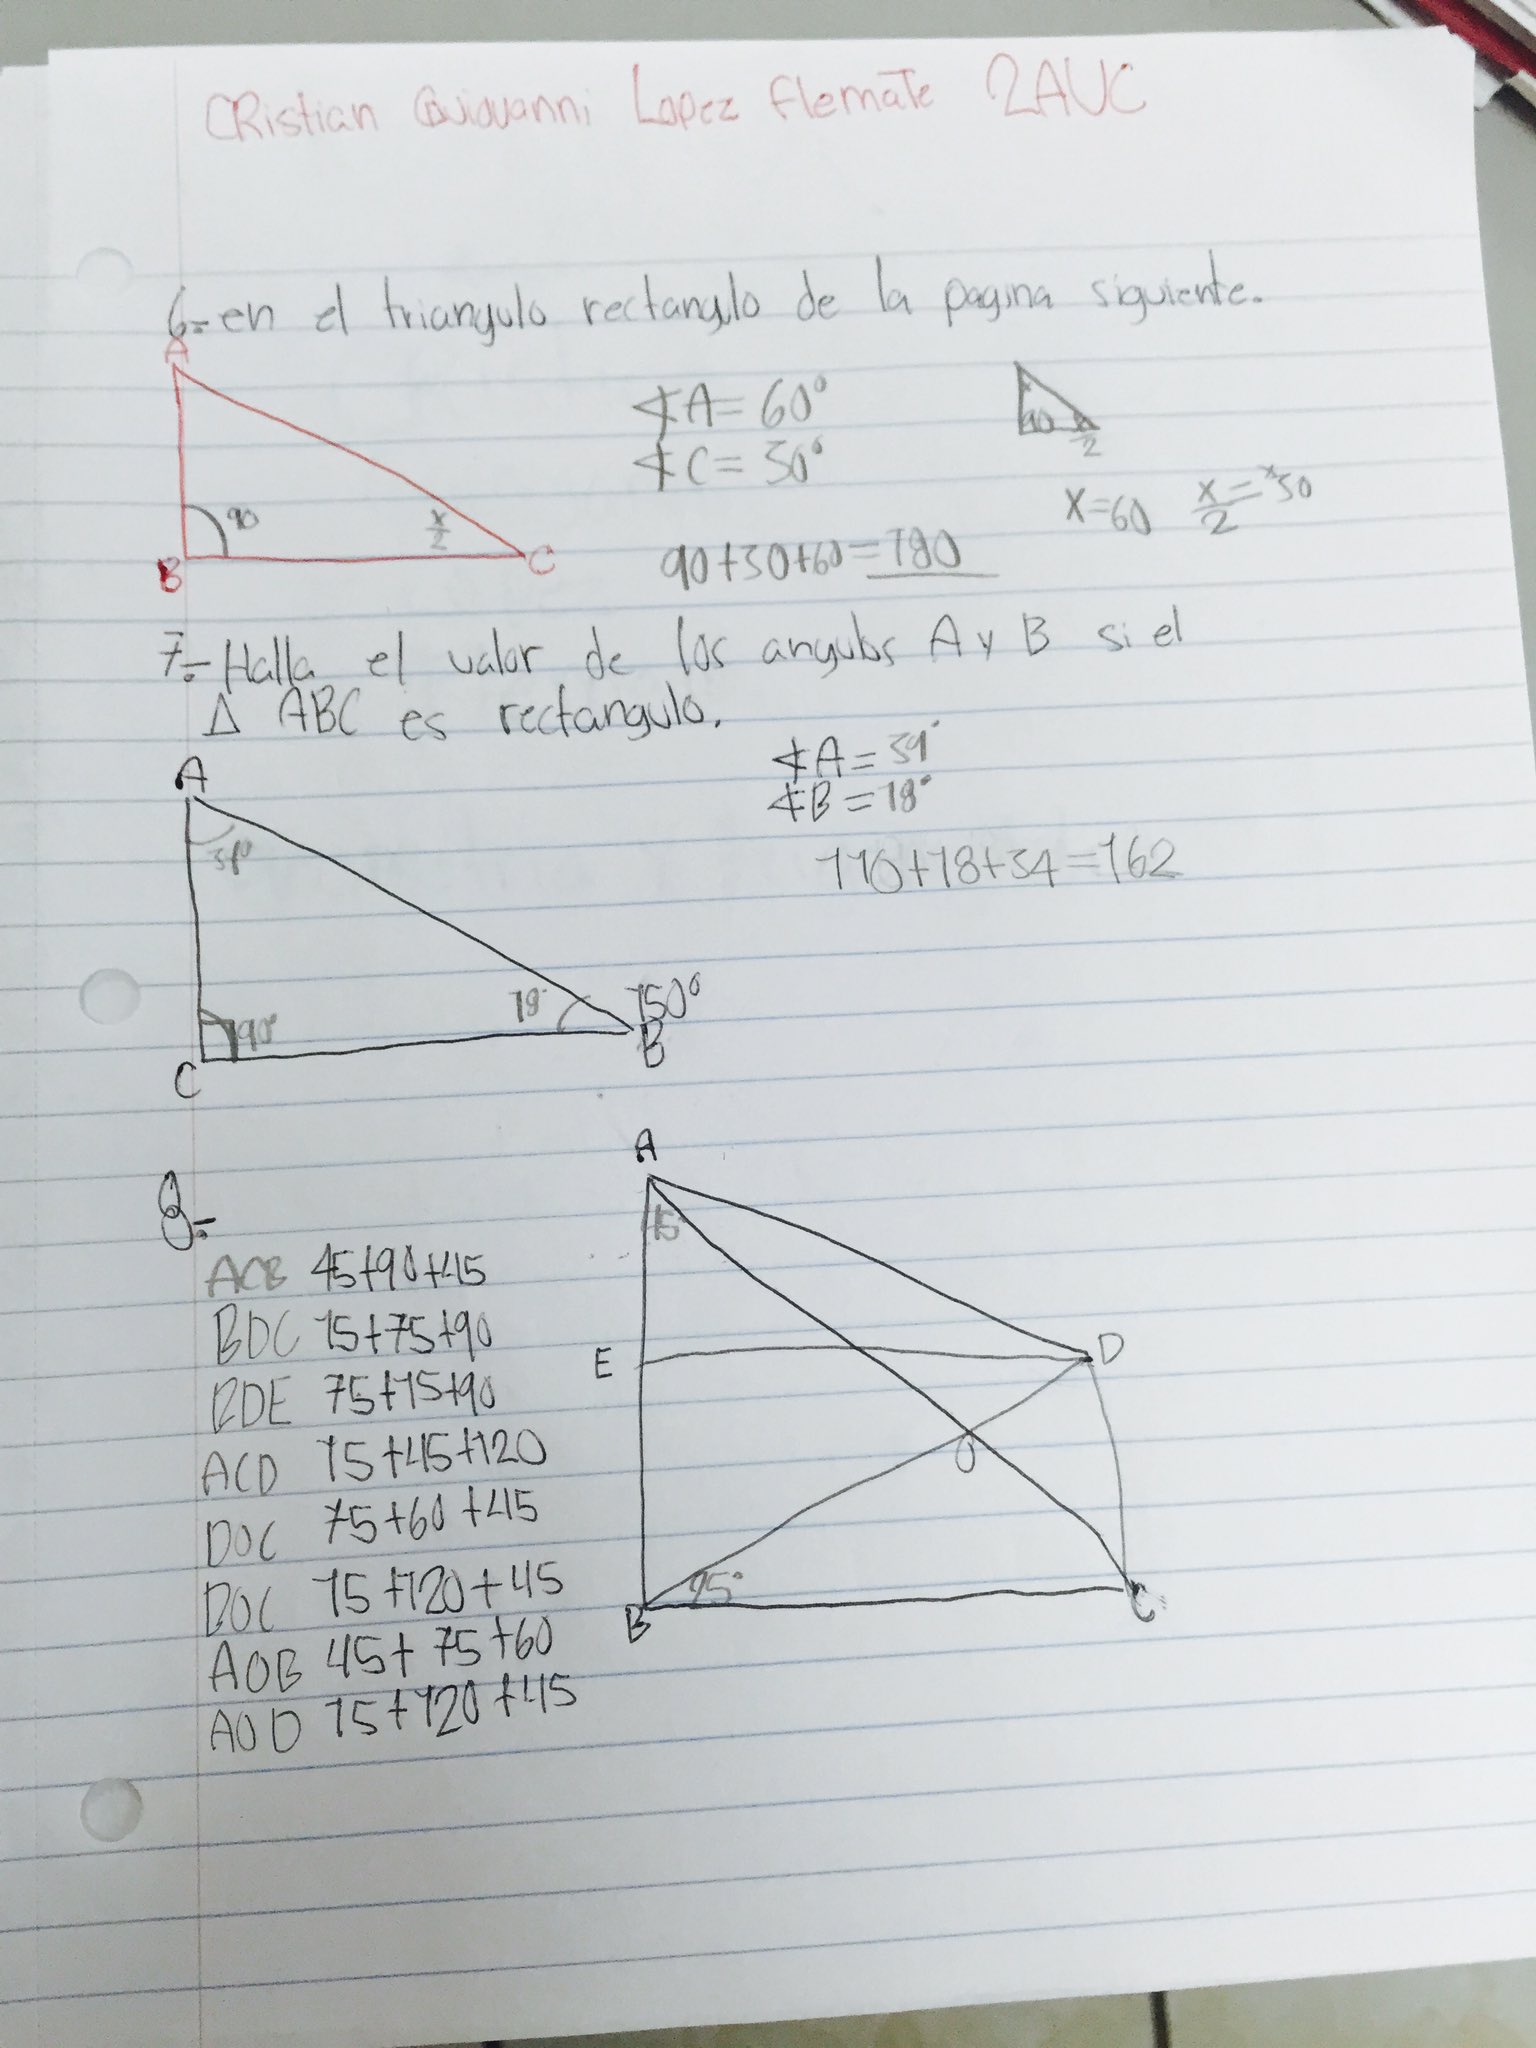 CRistian Guiovanni Lopez flemate 2AUC
6.- en el triangulo rectangulo de la pagina siguiente.
A
∢A = 60°
∢C = 30°
90 x/2
x=60 x/2 = 30
90 x/2
B C
90+30+60=180
7.- Halla el valor de los angulos A y B si el
Δ ABC es rectangulo.
∢A = 34°
∢B = 18°
110+18+34=162
A
34°
18° 150°
90° B
C
8.-
A
15°
E D
O
B 25° C
ACB 45+90+45
BDC 15+75+90
BDE 75+15+90
ACD 15+45+120
DOC 75+60+45
BOC 15+120+45
AOB 45+75+60
AOD 15+120+45